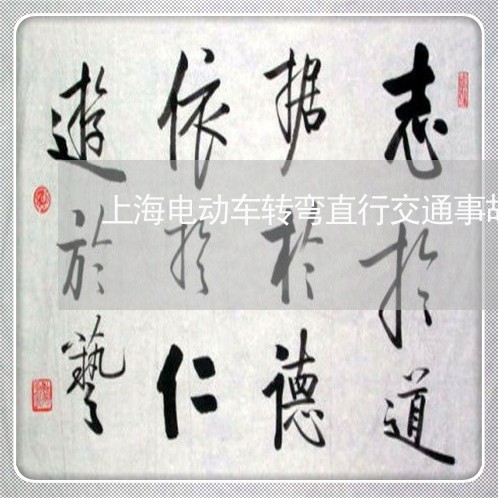 志於道
据於德
依於仁
遊於藝
上海电动车转弯直行交通事故